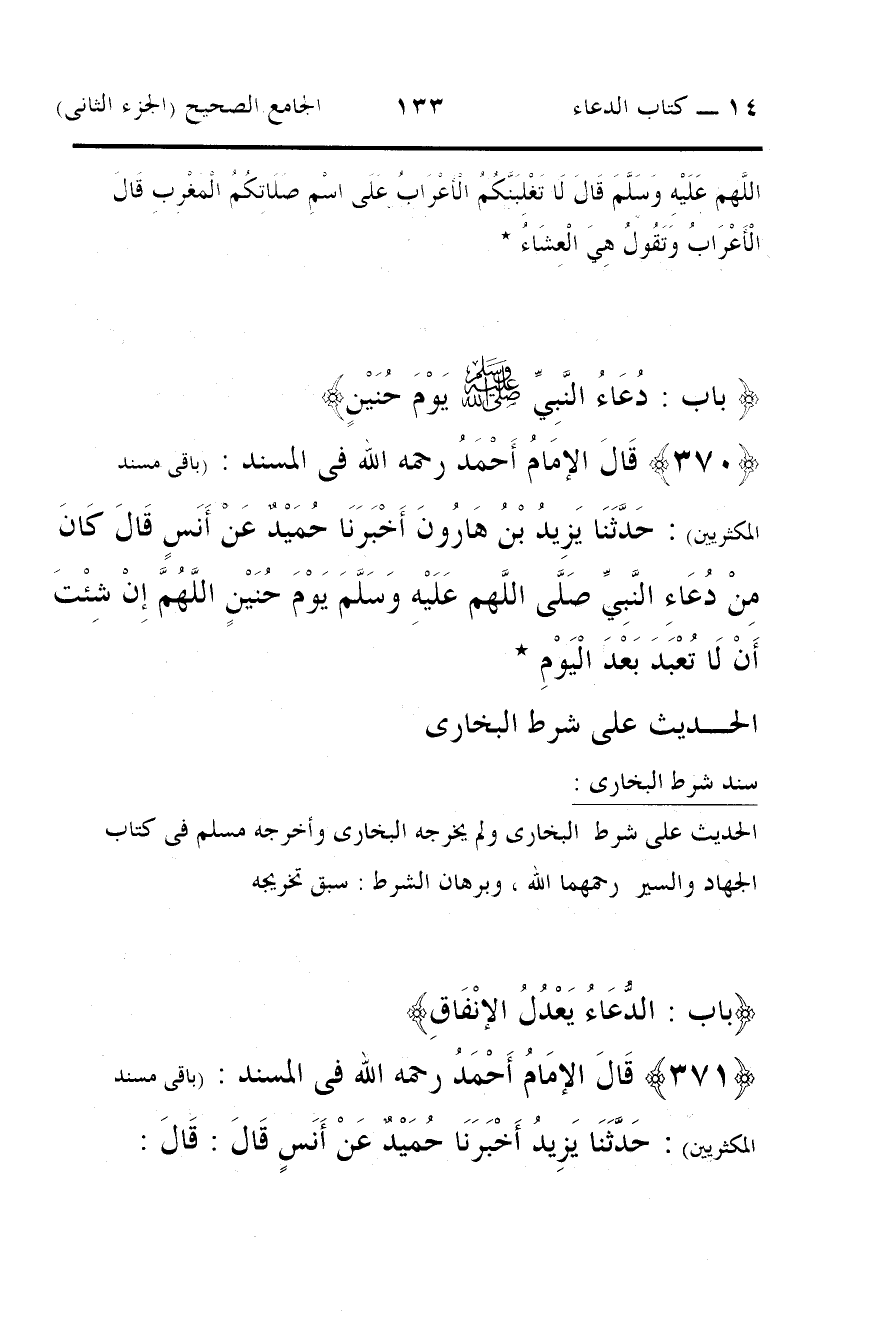 ١٤ ـــ كتاب الدعاء ١٣٣ الجامع الصحيح (الجزء الثانى)
اللَّهم عَلَيْهِ وَسَلَّمَ قَالَ لَا تَغْلِبَنَّكُمُ الْأَعْرَابُ عَلَى اسْمِ صَلَاتِكُمُ الْمَغْرِبِ قَالَ
الْأَعْرَابُ وَتَقُولُ هِيَ الْعِشَاءُ *
﴿ باب : دُعَاءُ النَّبِيِّ ﷺ يَوْمَ حُنَيْنٍ﴾
﴿٣٧٠﴾ قَالَ الإِمَامُ أَحْمَدُ رحمه الله فى المسند : (باقى مسند
المكثريين) : حَدَّثَنَا يَزِيدُ بْنُ هَارُونَ أَخْبَرَنَا حُمَيْدٌ عَنْ أَنَسٍ قَالَ كَانَ
مِنْ دُعَاءِ النَّبِيِّ صَلَّى اللهم عَلَيْهِ وَسَلَّمَ يَوْمَ حُنَيْنٍ اللَّهُمَّ إِنْ شِئْتَ
أَنْ لَا تُعْبَدَ بَعْدَ الْيَوْمِ *
الحـــديث على شرط البخارى
سند شرط البخارى :
الحديث على شرط البخارى ولم يخرجه البخارى وأخرجه مسلم فى كتاب
الجهاد والسير رحمهما الله ، وبرهان الشرط : سبق تخريجه
﴿باب : الدُّعَاءُ يَعْدُلُ الإِنْفَاقِ﴾
﴿٣٧١﴾ قَالَ الإِمَامُ أَحْمَدُ رحمه الله فى المسند : (باقى مسند
المكثريين) : حَدَّثَنَا يَزِيدُ أَخْبَرَنَا حُمَيْدٌ عَنْ أَنَسٍ قَالَ : قَالَ :